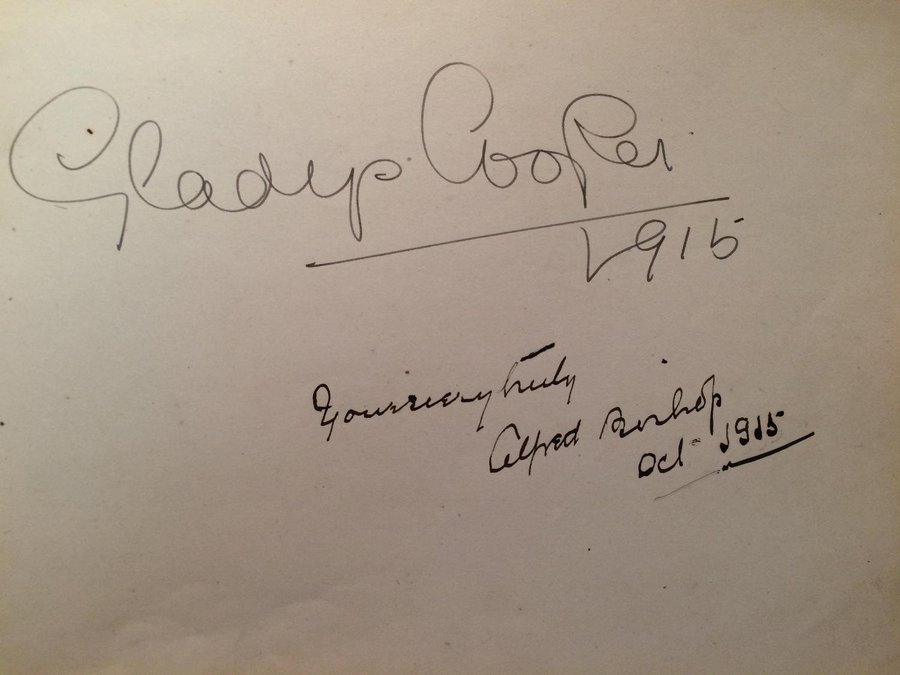 Gladys Cooper
1915
Yours very truly
Alfred Bishop
Oct 1915